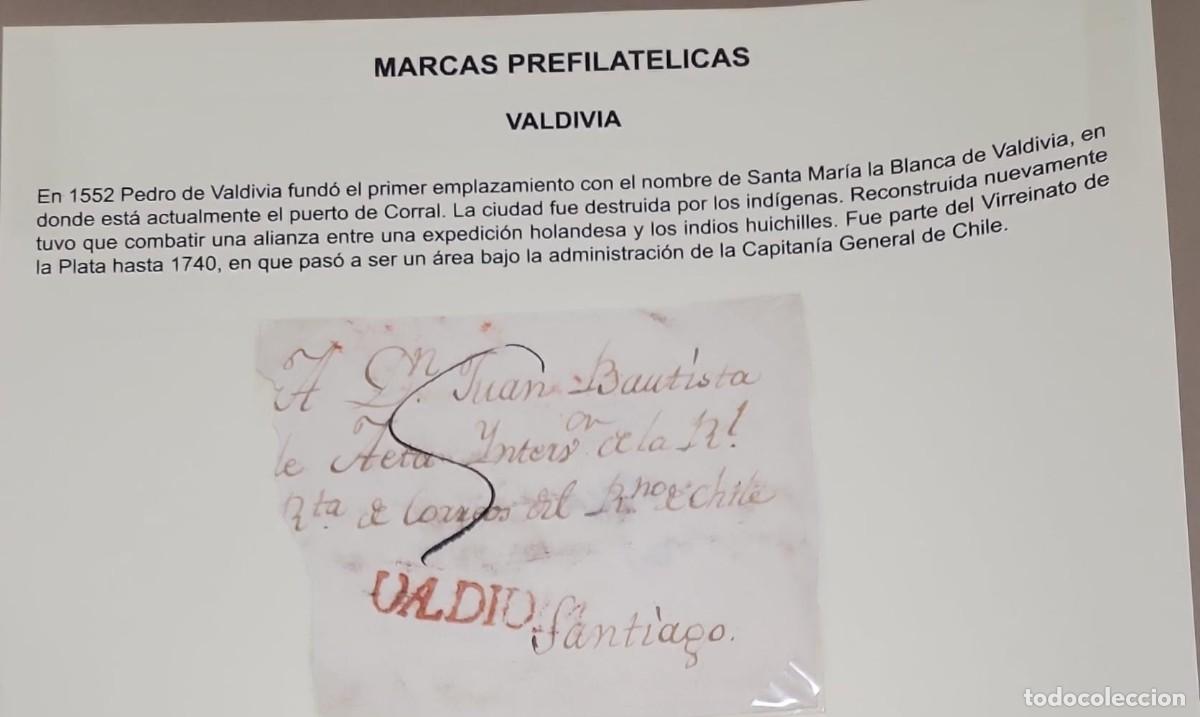 MARCAS PREFILATELICAS
VALDIVIA
En 1552 Pedro de Valdivia fundó el primer emplazamiento con el nombre de Santa María la Blanca de Valdivia, en
donde está actualmente el puerto de Corral. La ciudad fue destruida por los indígenas. Reconstruída nuevamente
tuvo que combatir una alianza entre una expedición holandesa y los indios huichilles. Fue parte del Virreinato de
la Plata hasta 1740, en que pasó a ser un área bajo la administración de la Capitanía General de Chile.
A Dn Juan Bautista
de Aeta Ynterv.or de la Rl.
Rta de Correos del Rno de Chile
VALDIV
Santiago.
todocoleccion